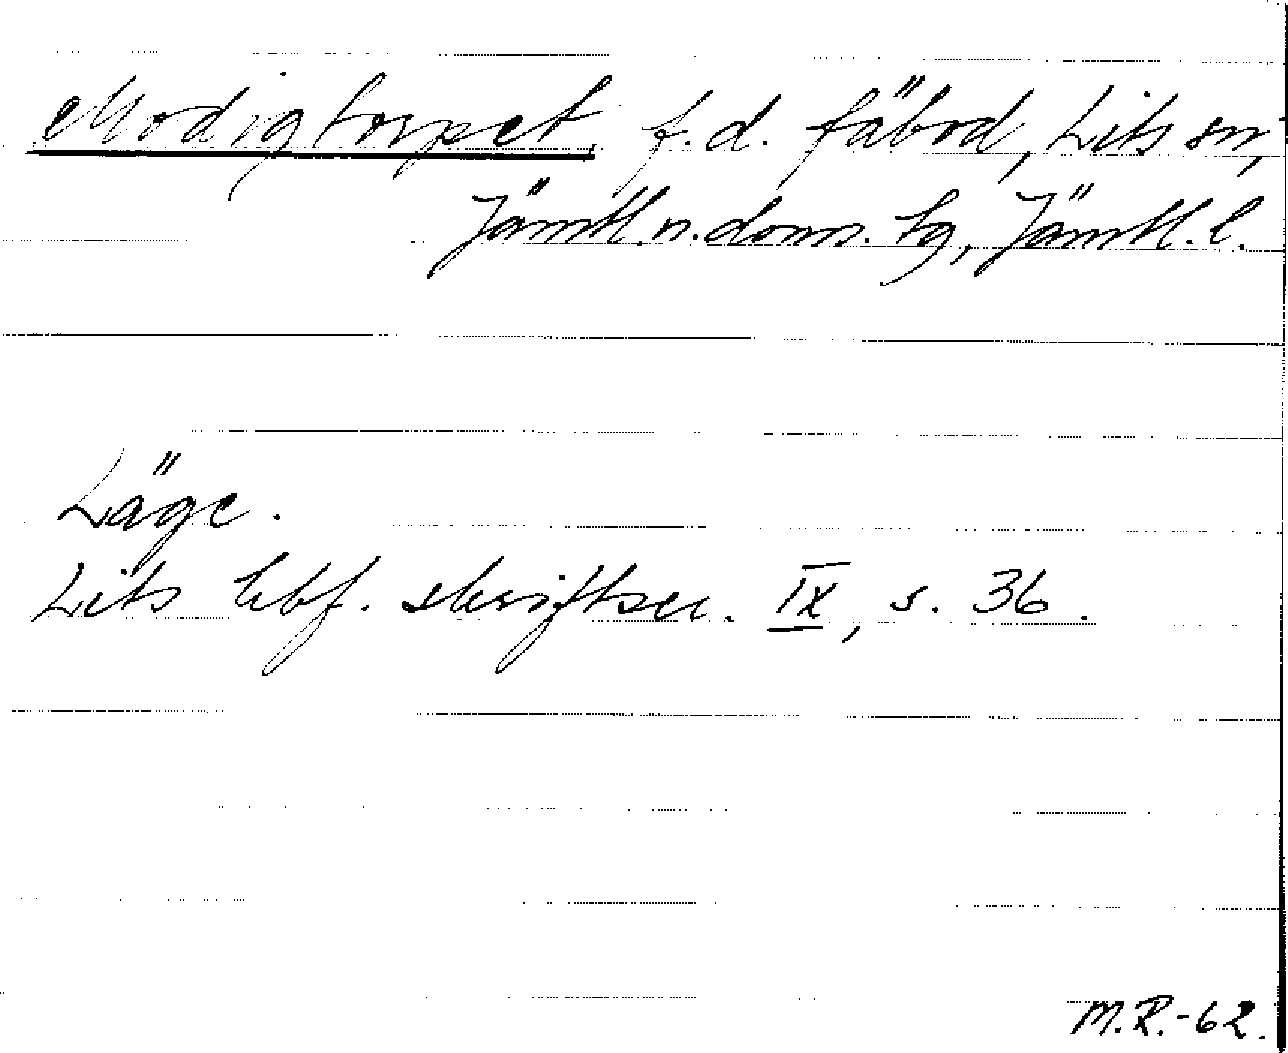 Modigtorpet, f.d. fäbod, Lits sn,
Jämtl.n.doms. tg, Jämtl. l.
Läge.
Lits hbf. skriftser. IX, s. 36.
M.R.-62.